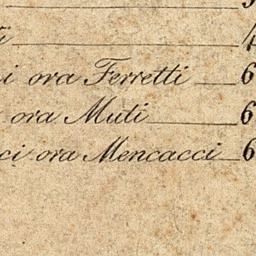 i ora Ferretti 6
ora Muti 6
ci ora Mencacci 6